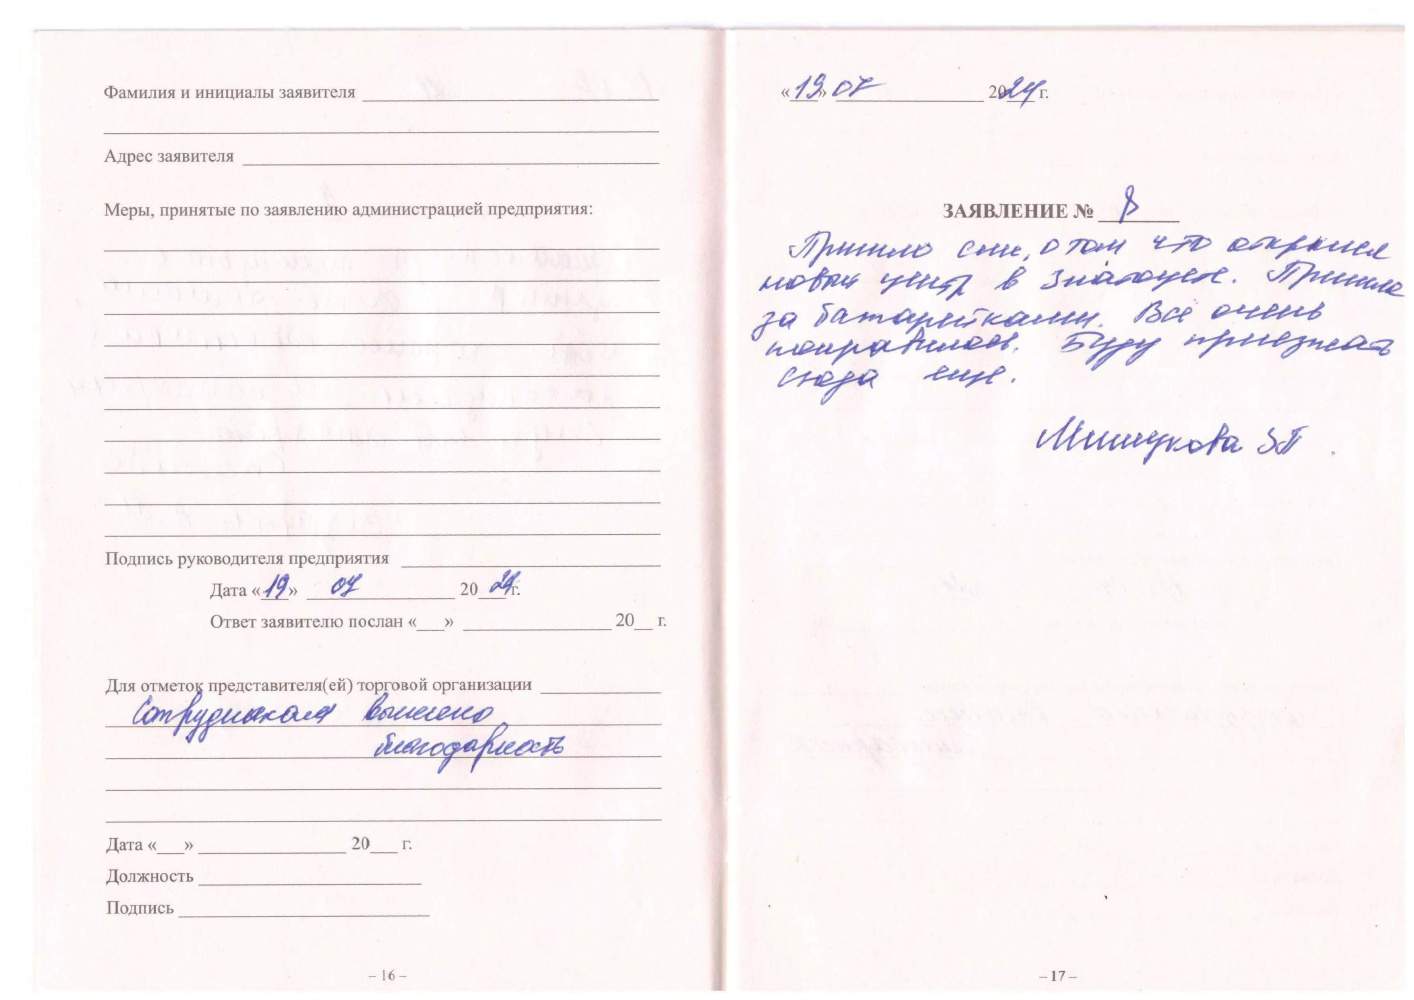 Фамилия и инициалы заявителя
Адрес заявителя
Меры, принятые по заявлению администрацией предприятия:
Подпись руководителя предприятия
Дата «19» 07 2024 г.
Ответ заявителю послан «___» ________ 20__ г.
Для отметок представителя(ей) торговой организации
Сотрудникам вынесено
благодарность
Дата «___» ________ 20___ г.
Должность
Подпись
– 16 –
«19» 07 2024 г.
ЗАЯВЛЕНИЕ № 8
Пришло смс, о том что открылся
новый центр в Златоусте. Пришла
за батарейками. Всё очень
понравилось. Буду приезжать
сюда еще.
Мишукова З П
– 17 –